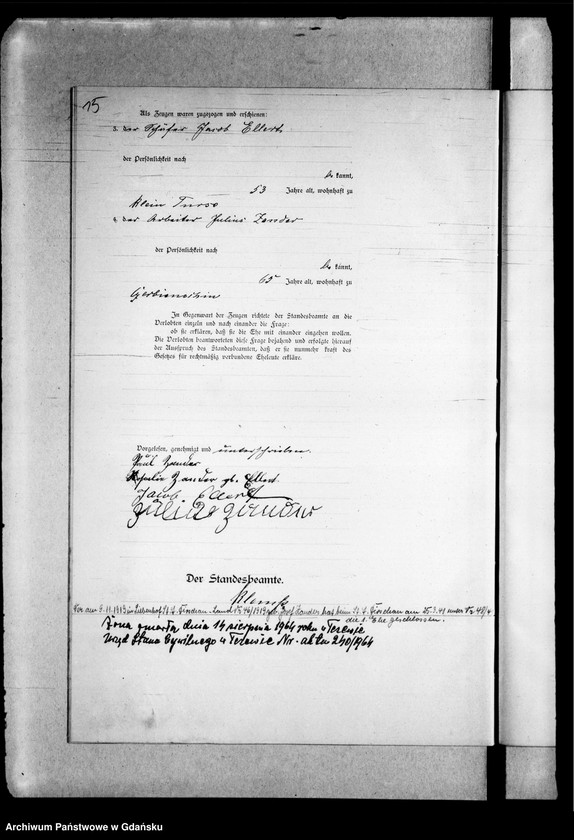 15
Als Zeugen waren zugezogen und erschienen:
3. der Schäfer Jacob Ellert
der Persönlichkeit nach
be kannt,
53 Jahre alt, wohnhaft zu
Klein Turse
4. der Arbeiter Julius Zander
der Persönlichkeit nach
be kannt,
65 Jahre alt, wohnhaft zu
In Gegenwart der Zeugen richtete der Standesbeamte an die
Verlobten einzeln und nach einander die Frage:
ob sie erklären, daß sie die Ehe mit einander eingehen wollen.
Die Verlobten beantworteten diese Frage bejahend und erfolgte hierauf
der Ausspruch des Standesbeamten, daß er sie nunmehr kraft des
Gesetzes für rechtmäßig verbundene Eheleute erkläre.
Vorgelesen, genehmigt und unterschrieben.
Paul Zander
Zander gb. Ellert
Jacob Ellert
Julius Zander
Der Standesbeamte.
am 9.11.1913 in St. A. Dirschau-Land Nr 46/1913 geb. Zander hat beim St. A. Dirschau am 25.3.41 unter Nr 48/41
die 1. Ehe geschlossen.
Żona zmarła dnia 14 sierpnia 1964 roku w Tczewie
Urząd Stanu Cywilnego w Tczewie Nr. aktu 240/1964
Archiwum Państwowe w Gdańsku